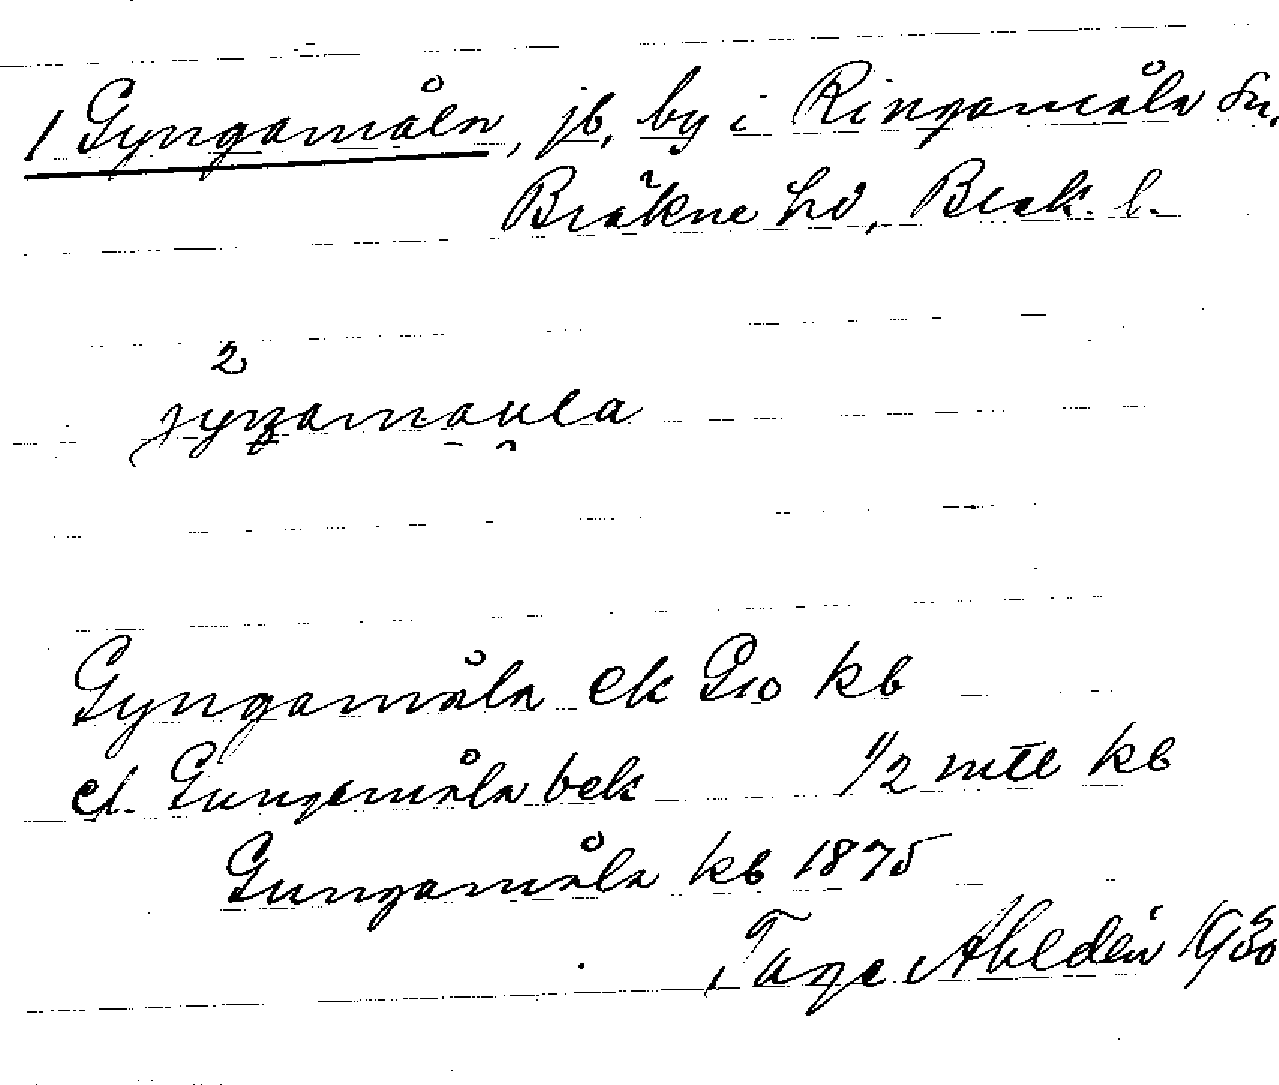 1 Gyngamåla, jb, by i Ringamåla sn,
Bräkne hd, Blek. l.
2
jyŋamaula
Gyngamåla ek G10 kb
el. Gungamåla bek 1/2 mtl kb
Gungamåla kb 1875
Tage Ahldén 1930